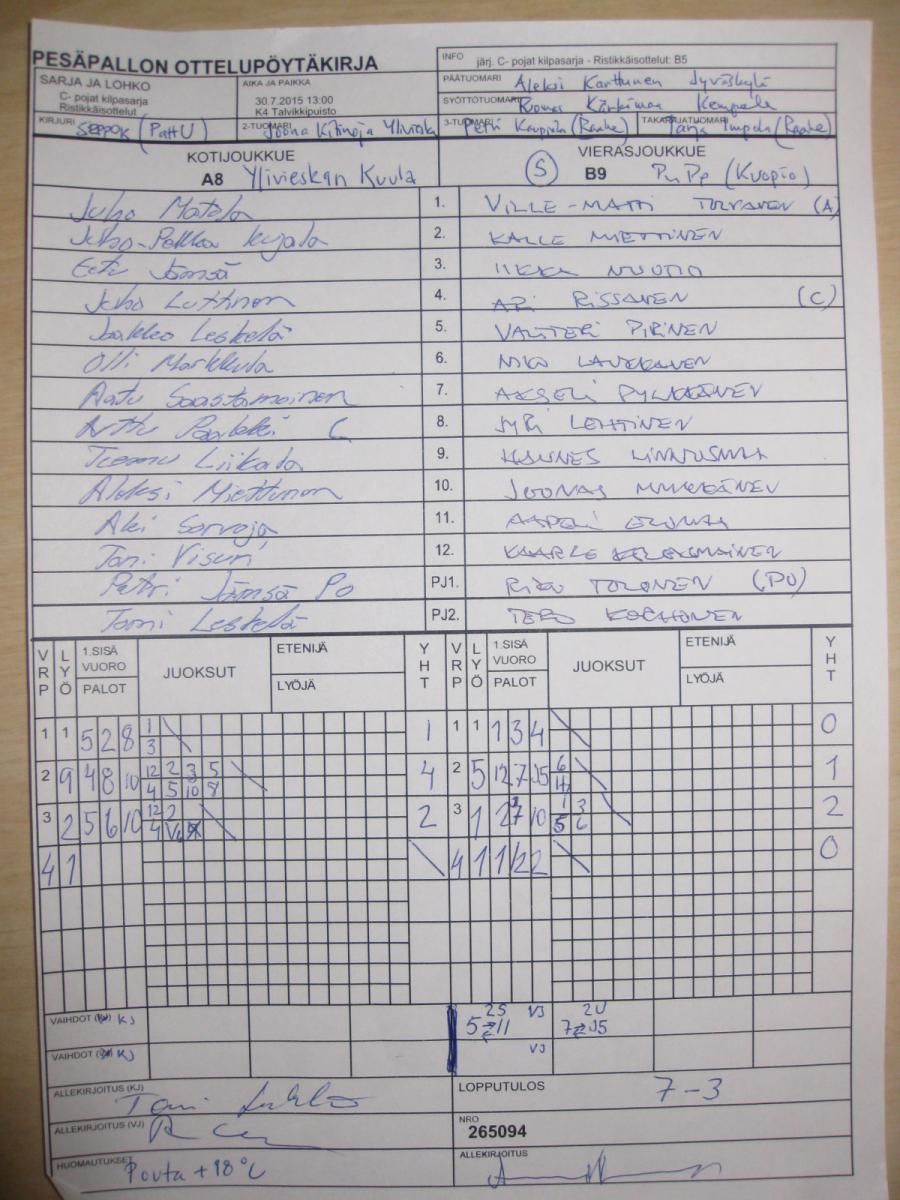 PESÄPALLON OTTELUPÖYTÄKIRJA
INFO järj. C- pojat kilpasarja - Ristikkäisottelut: B5
SARJA JA LOHKO
C- pojat kilpasarja
Ristikkäisottelut
AIKA JA PAIKKA
30.7.2015 13:00
K4 Talvikkipuisto
PÄÄTUOMARI Aleksi Karttunen Jyväskylä
SYÖTTÖTUOMARI Kempele
KIRJURI SEPPOK (PattU)
2-TUOMARI Joona Kitinoja Ylivieska
3-TUOMARI Petri Kauppila (Raahe)
TAKARAJATUOMARI Tarja Impola (Raahe)
KOTIJOUKKUE
A8 Ylivieskan Kuula
VIERASJOUKKUE
S B9 PuPe (Kuopio)
Juho Matela 1. VILLE-MATTI TOLVANEN (A)
Juho-Pekka Kujala 2. KALLE MIETTINEN
Eetu Jämsä 3. IIKKA NUUTIO
Juho Luttinen 4. ARI RISSANEN (C)
Jaakko Leskelä 5. VALTTERI PIRINEN
Olli Markkula 6. NIKO LAUKKANEN
Aatu Saastamoinen 7. AKSELI PYLKKÄNEN
Arttu C 8. JYRI LEHTINEN
Teemu Liikala 9. HANNES LINNUSMAA
Aleksi Miettunen 10. JOONAS
Aki Sarvoja 11. AAPELI
Toni Visuri 12. KAARLE
Petri Jämsä Po PJ1. TOLONEN (PO)
Tomi Leskelä PJ2. TERO KORHONEN
VRP LYÖ 1.SISÄ VUORO PALOT JUOKSUT ETENIJÄ LYÖJÄ YHT VRP LYÖ 1.SISÄ VUORO PALOT JUOKSUT ETENIJÄ LYÖJÄ YHT
1 1 5 2 8 1 1 1 1 1 3 4 0
3
2 9 4 8 10 12 2 3 5 4 2 5 12 7 J5 6 1
4 5 10 8
3 2 5 6 10 12 2 2 3 1 2 7 10 1 3 2
4 5 6
4 1 4 1 1 12 2 0
VAIHDOT KJ 2S VJ 2U
5⇄11 7⇄J5
VAIHDOT KJ VJ
ALLEKIRJOITUS (KJ)
LOPPUTULOS 7-3
ALLEKIRJOITUS (VJ)
NRO
265094
HUOMAUTUKSET Pouta +18°C
ALLEKIRJOITUS